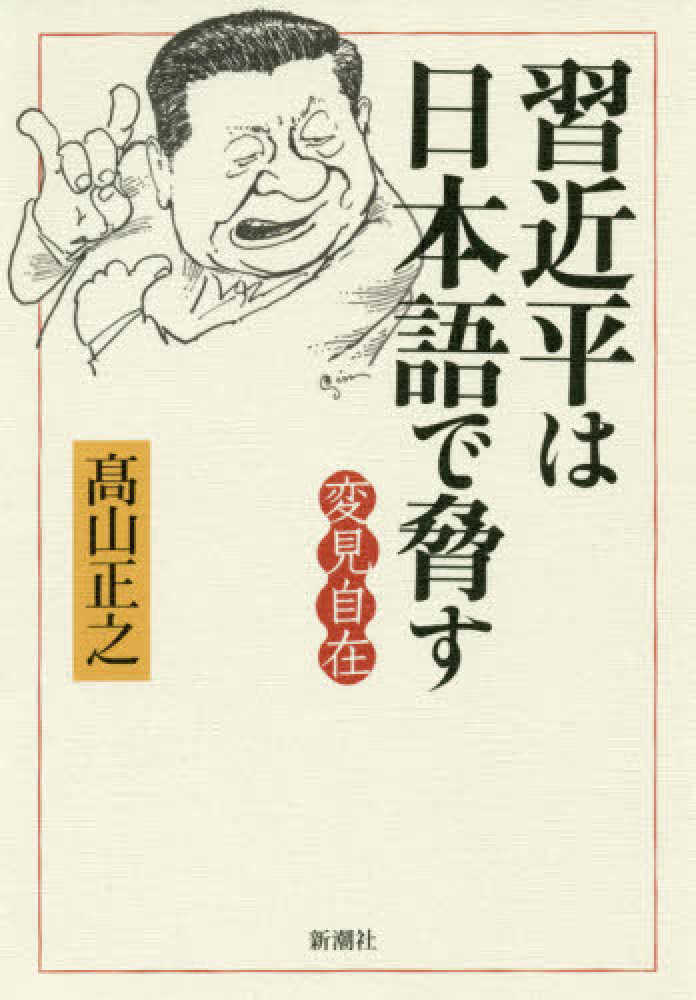 習近平は
日本語で脅す
変見自在
髙山正之
新潮社